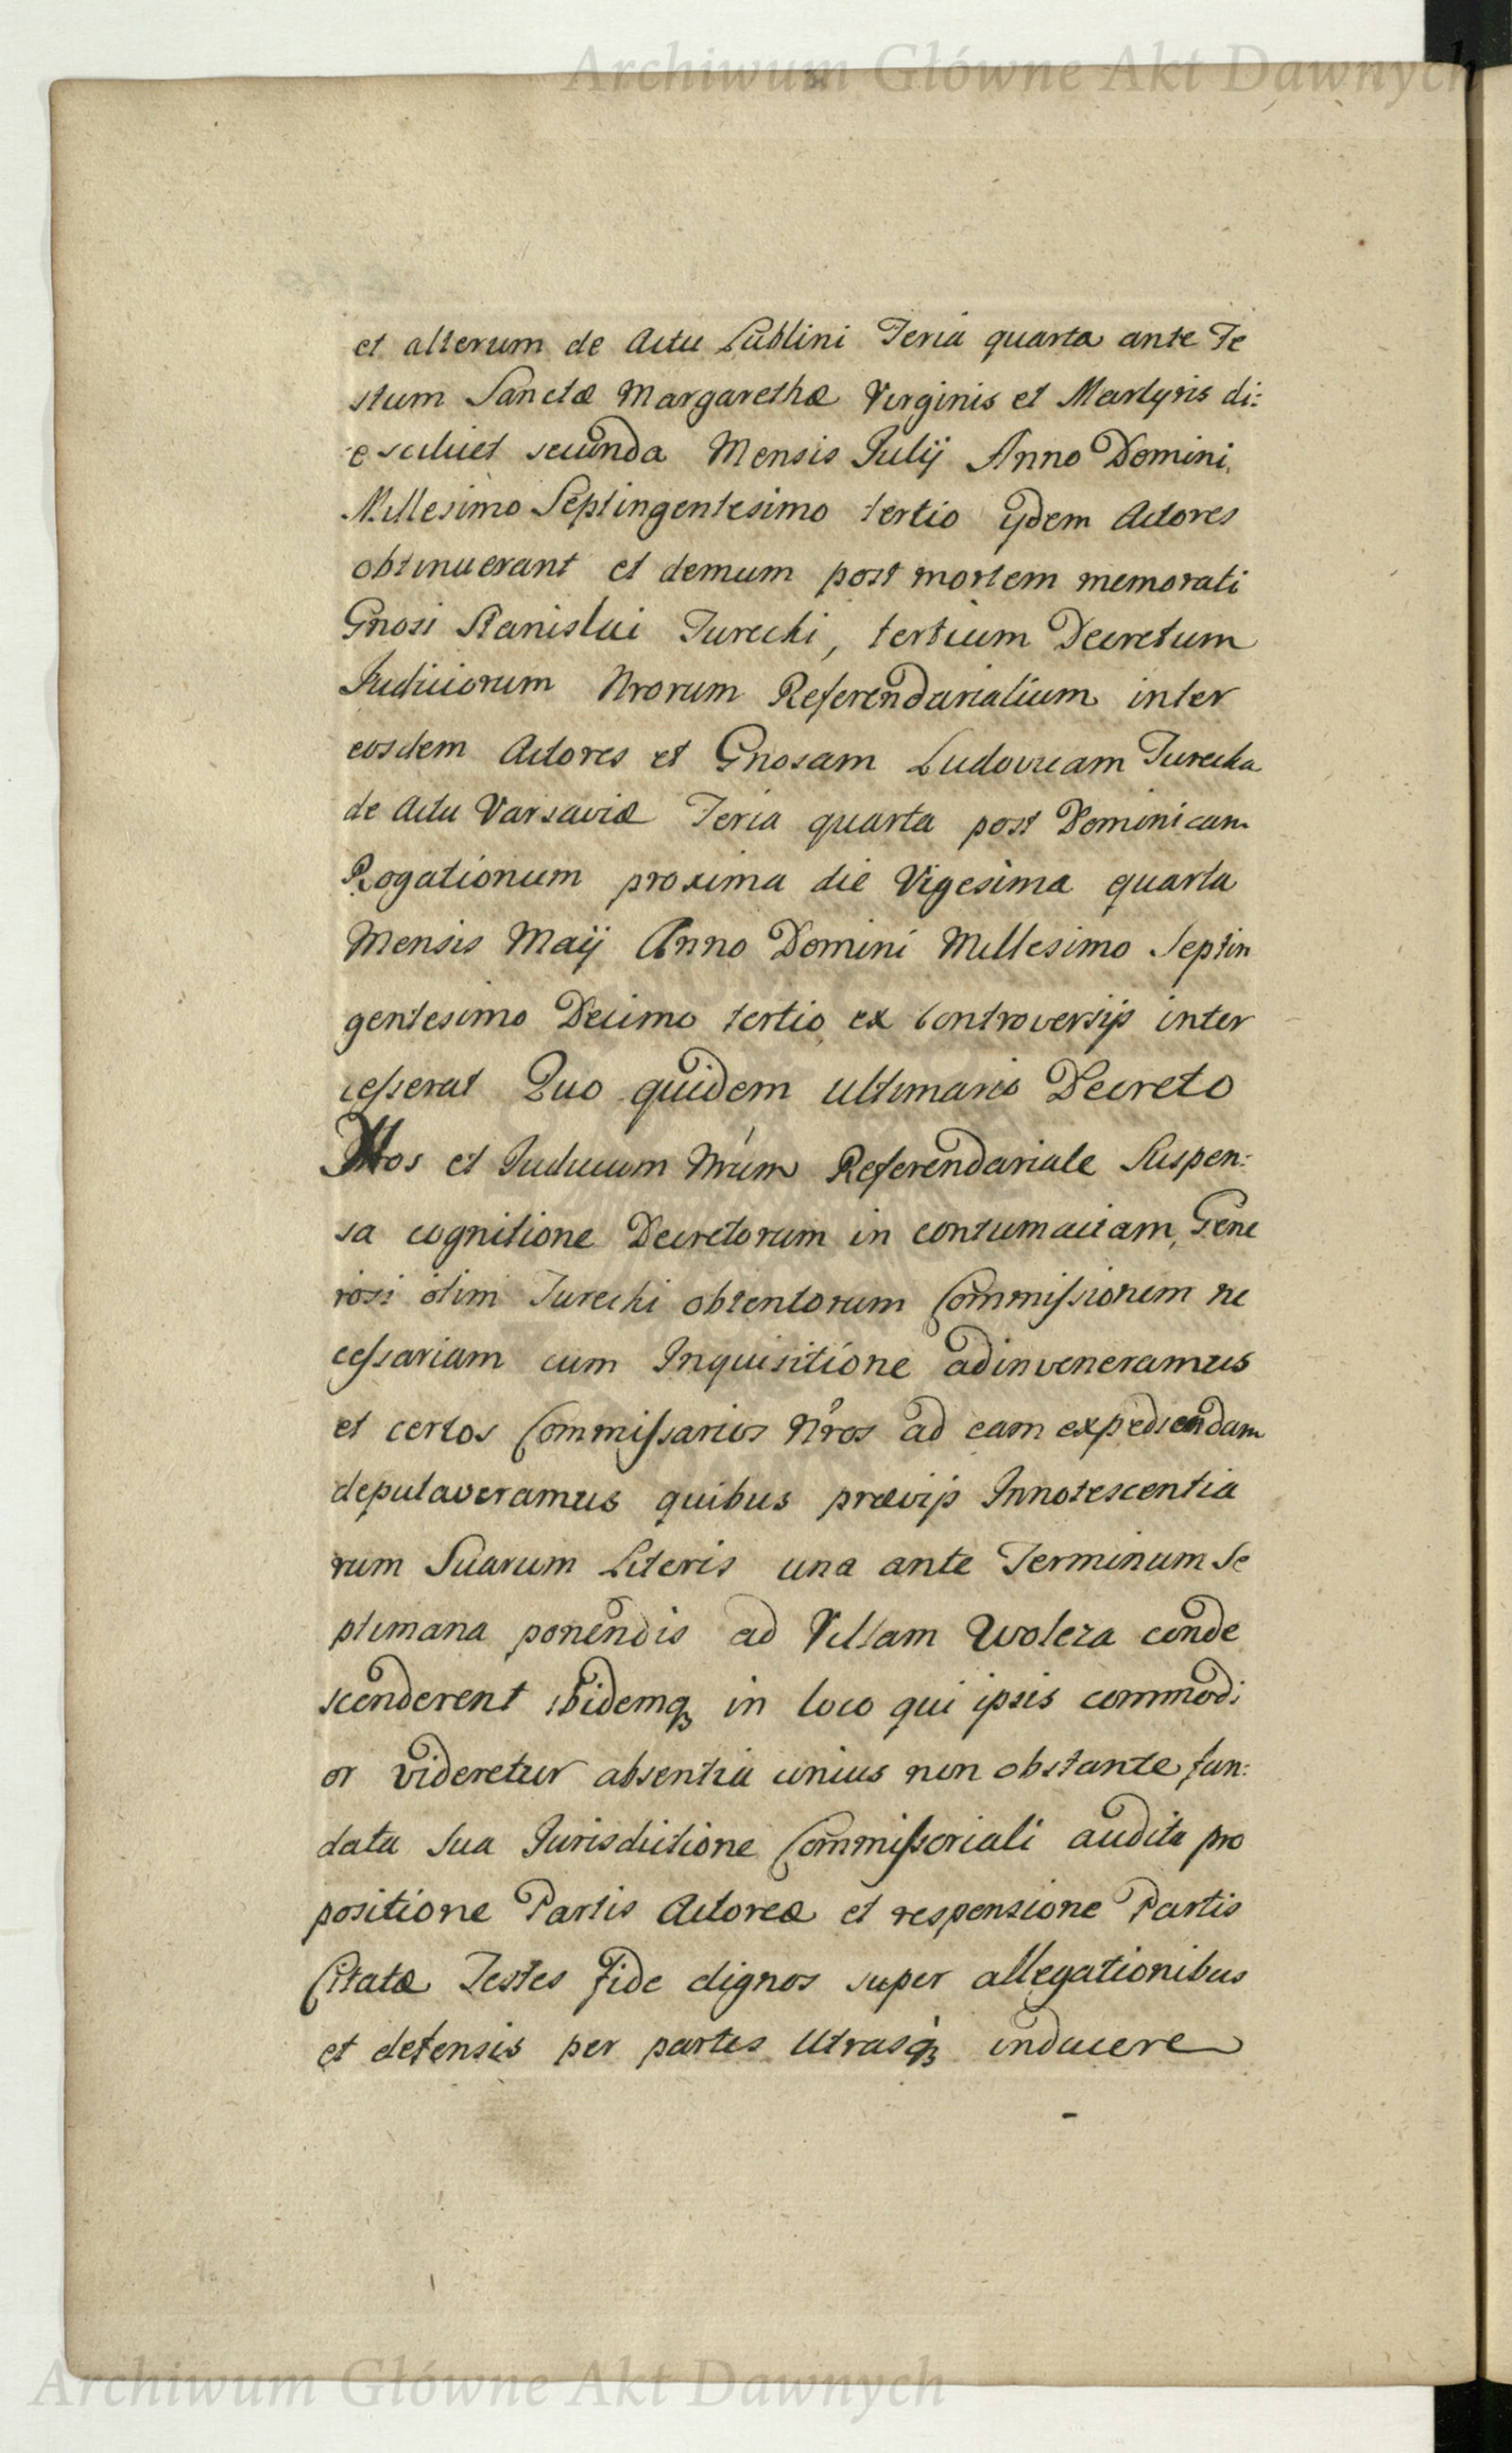 Archiwum Główne Akt Dawnych
et alterum de Actu Lublini Feria quarta ante Fe
stum Sanctæ Margarethæ Virginis et Martyris di:
e scilicet secunda Mensis Julij Anno Domini
Millesimo Septingentesimo tertio ijdem Actores
obtinuerant et demum post mortem memorati
Gnosi Stanislai Turecki, tertium Decretum
Judiciorum Nrorum Referendarialium inter
eosdem Actores et Gnosam Ludovicam Turecka
de Actu Varsaviæ Feria quarta post Dominicam
Rogationum proxima die Vigesima quarta
Mensis Maij Anno Domini Millesimo Septin
gentesimo Decimo tertio ex Controversijs inter
cesserat Quo quidem ultimario Decreto
Nos et Judicium Nrum Referendariale Suspen:
sa cognitione Decretorum in contumaciam, Gene
rosi olim Turecki obtentorum Commissionem ne
cessariam cum Inquisitione adinveneramus
et certos Commissarios Nros ad eam expediendam
deputaveramus quibus prævijs Innotescentia
rum Suarum Literis una ante Terminum Se
ptimana ponendis ad Villam Wolcza conde
scenderent ibidemq in loco qui ipsis commodi
or videretur absentia unius non obstante fun:
data sua Jurisdictione Commissoriali audita pro
positione Partis Actoreæ et responsione Partis
Citatæ Testes fide dignos super allegationibus
et defensis per partes Utrasq inducere
Archiwum Główne Akt Dawnych